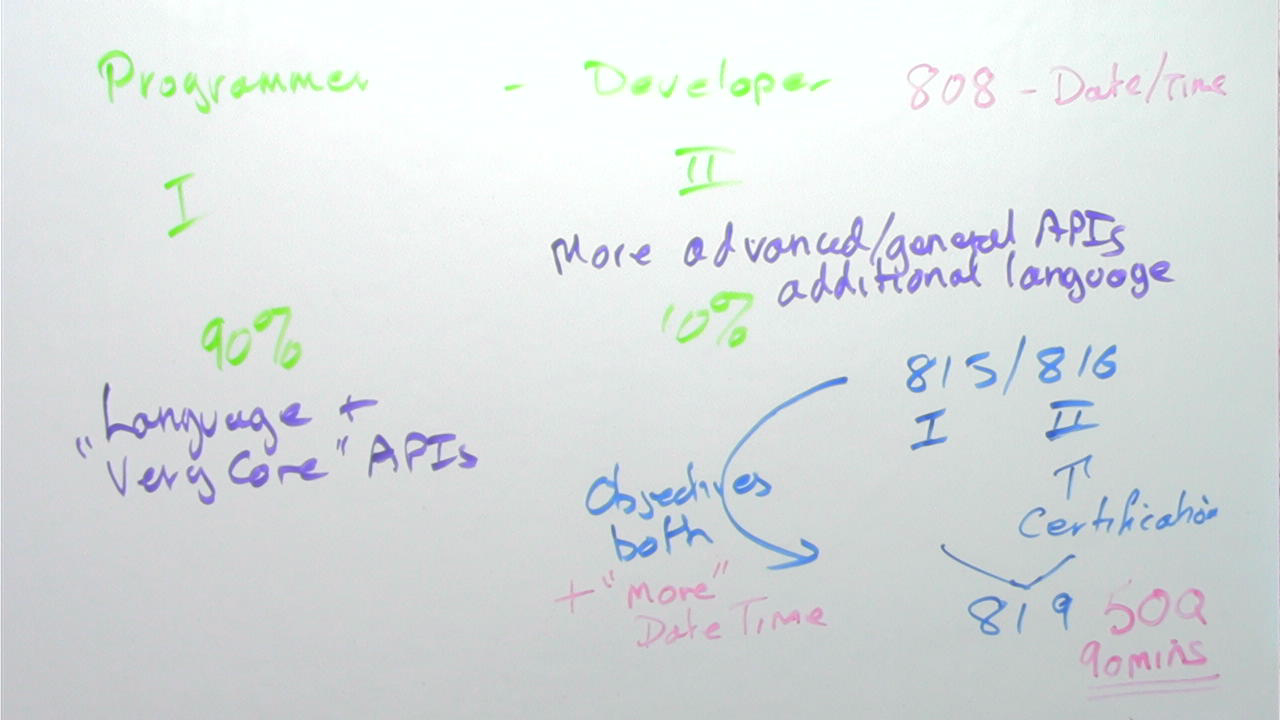 Programmer - Developer 808 - Date/Time
I II
More advanced/general APIs
additional language
90% 10%
"Language +
Very Core" APIs
815/816
I II
Certification
Objectives
both
+ "More"
Date Time
819 50Q
90mins